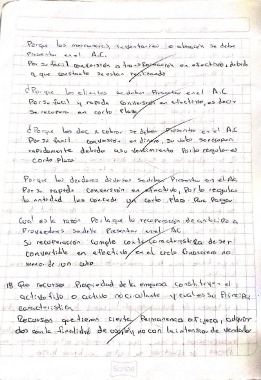 Porque las mercancías, inventarios o almacén se debe
Presentar en el A.C.
Por su fácil conversión o transformación en efectivo, debido
a que constante se están realizando
¿Porque los clientes se deben Presentar en el A.C
Por su fácil y rapida conversión en efectivo, es decir
se recupera en corto Plazo
¿Porque los doc. x cobrar se deben Presentar en el A.C
Por su fácil conversión en dinero, su valor se recupera
rapidamente debido a su vencimiento Por lo regular es
corto plazo
Porque los deudores diversos se deben Presentar en el A.C
Por su rapida conversión en efectivo, Por lo regular
la entidad les concede un corto Plazo Para Pagar
Cual es la razon Por la que la recuperación de anticipo a
Proveedores se debe Presentar en el A.C.
Su recuperación cumple con la característica de ser
convertible en efectivo en el ciclo financiero no
mayor de un año
18 Que recursos Propiedad de la empresa constituyen el
activo fijo o activo no circulante y cual es su Principal
característica
Recursos que tienen cierta Permanencia o fijeza, adquiri
dos con la finalidad de usarlos y no con la intension de venderlos